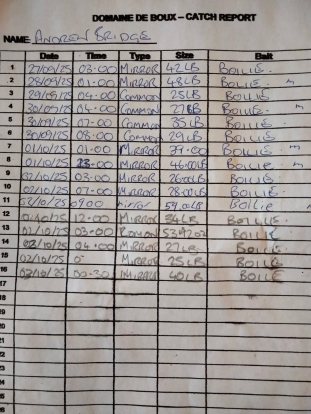 DOMAINE DE BOUX – CATCH REPORT
NAME: ANDREW BRIDGE
Date Time Type Size Bait
1 27/09/25 03.00 MIRROR 42LB BOILIE.
2 28/09/25 01.00 MIRROR 48LB BOILIE.
3 29/09/25 04.00 COMMON 25LB BOILIE
4 30/09/25 04.00 COMMON 27LB BOILIE.
5 30/09/25 07.00 COMMON 35LB BOILIE.
6 30/09/25 08.00 COMMON 29LB BOILIE.
7 01/10/25 01.00 MIRROR BOILIE.
8 01/10/25 MIRROR 46.00LB BOILIE.
9 02/10/25 03.00 MIRROR 26.00LB BOILIE.
10 02/10/25 07.00 MIRROR 28.00LB BOILIE.
11 0900 Mirror Boilie
12 12.00 MIRROR 34LB BOILIE.
13 02/10/25 03.00 BOILIE
14 02/10/25 04.00 MIRROR 27LB BOILIE
15 02/10/25 MIRROR 25LB BOILIE
16 02/10/25 00.30 40LB BOILIE
17
18
19
20
21
22
23
24
25